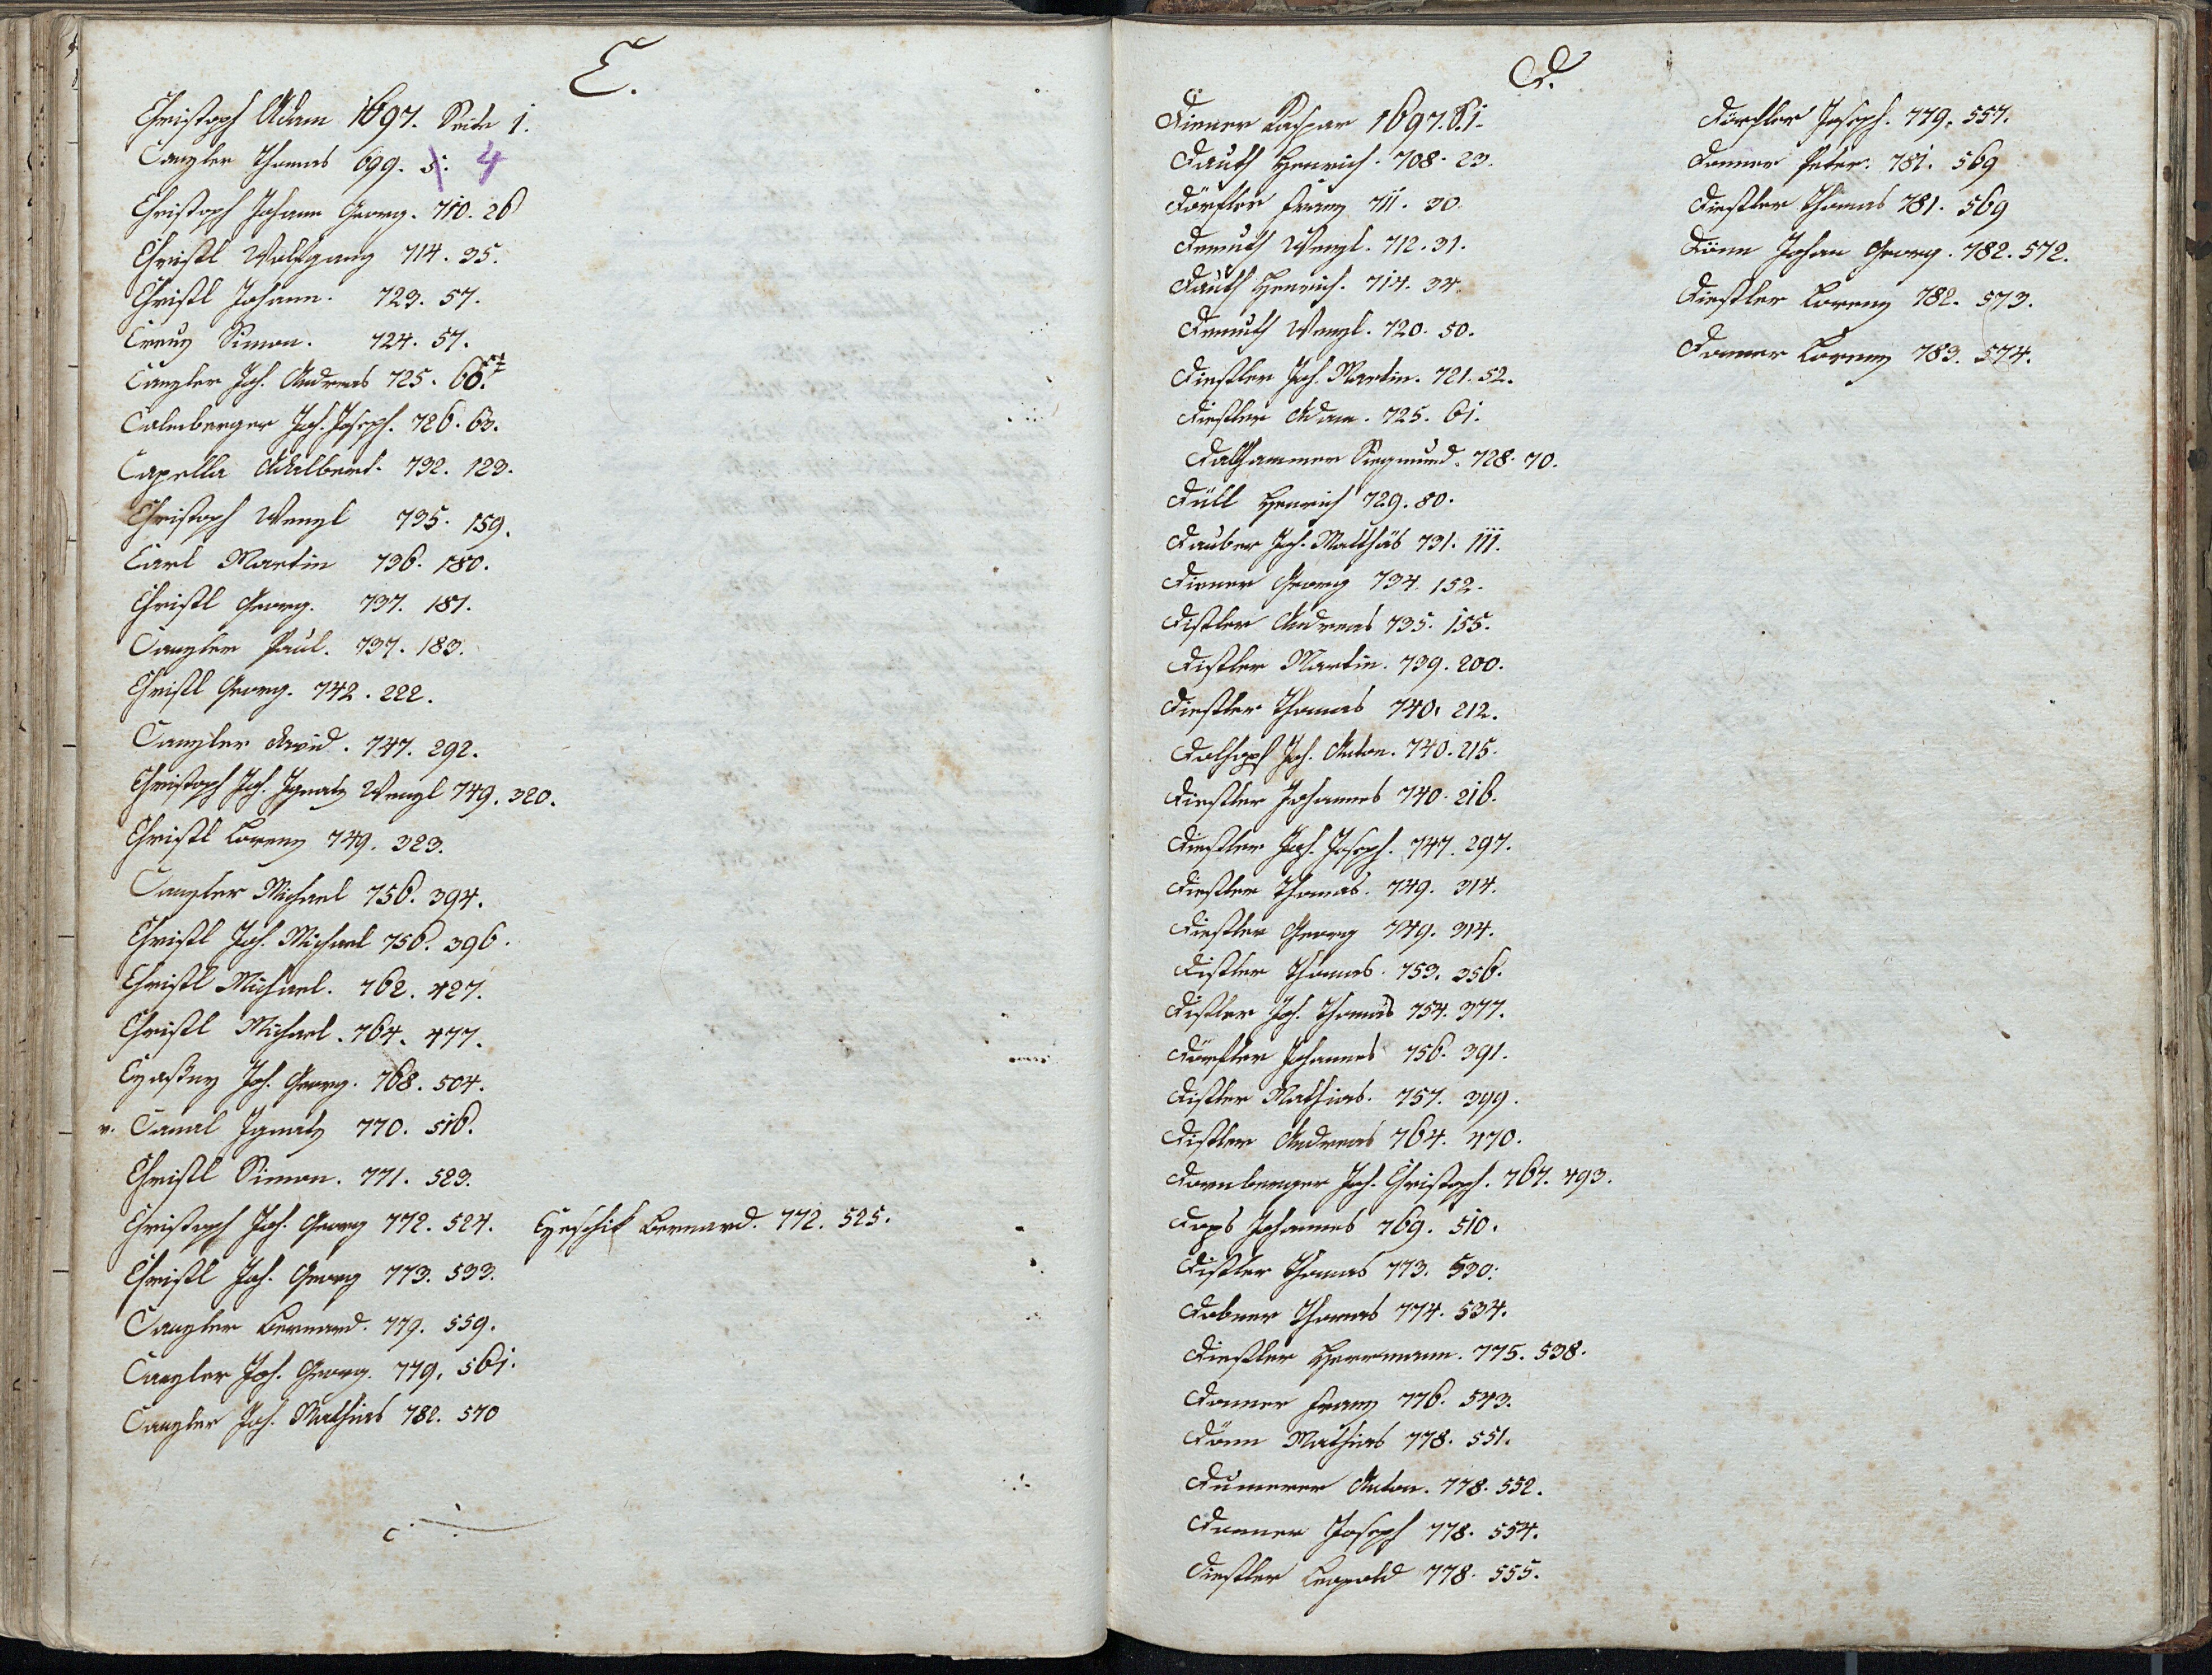 C.
Christoph Adam 1697. Seite 1.
Canzler Thomas 699. 5. 4
Christoph Johann Georg. 710. 26
Christl Wolfgang 714. 35.
Christl Johann. 723. 57.
Creuz Simon. 724. 57.
Canzler Joh. Andreas 725. 60.
Calmberger Joh. Joseph. 726. 63.
Capella Adalbert. 732. 123.
Christoph Wenzl 735. 159.
Carl Martin 736. 180.
Christl Georg. 737. 181.
Canzler Paul. 737. 183.
Christl Georg. 742. 222.
Canzler David. 747. 292.
Christoph Joh. Ignatz Wenzl 749. 320.
Christl Lorenz 749. 323.
Canzler Michael 756. 394.
Christl Joh. Michael 756. 396.
Christl Michael. 762. 427.
Christl Michael. 764. 477.
Czastny Joh. Georg. 768. 504.
v. Canal Ignatz 770. 516.
Christl Simon. 771. 523.
Christoph Joh. Georg 772. 524. Czeschik Bernard. 772. 525.
Christl Joh. Georg 773. 533.
Canzler Bernard. 779. 559.
Canzler Joh. Georg. 779. 561.
Canzler Joh. Mathias 782. 570
D.
Diener Kaspar 1697. S. 1.
Dauth Henrich. 708. 23.
Dörfler Franz 711. 30.
Demuth Wenzl. 712. 31.
Dauth Henrich. 714. 34.
Demuth Wenzl. 720. 50.
Diestler Joh. Martin. 721. 52.
Diestler Adam. 725. 61.
Dalhammer Siegmund. 728. 70.
Düll Henrich 729. 80.
Dauber Joh. Matthäs 731. 111.
Diener Georg 734. 152.
Distler Andreas 735. 155.
Distler Martin. 739. 200.
Diestler Thomas 740. 212.
Dolhopf Joh. Anton. 740. 215.
Diestler Johannes 740. 216.
Diestler Joh. Joseph. 747. 297.
Diestler Thomas. 749. 314.
Diestler Georg 749. 314.
Distler Thomas. 753. 356.
Distler Joh. Thomas 754. 377.
Dörfler Johannes 756. 391.
Distler Mathias. 757. 399.
Distler Andreas 764. 470.
Dornberger Joh. Christoph. 767. 493.
Dops Johannes 769. 510.
Distler Thomas 773. 530.
Dobner Thomas 774. 534.
Diestler Herrmann. 775. 538.
Donner Franz 776. 543.
Dönn Mathias 778. 551.
Dumerer Anton. 778. 552.
Donner Joseph 778. 554.
Diestler Leopold 778. 555.
Dörfler Joseph. 779. 557.
Donner Peter. 781. 569
Diestler Thomas 781. 569
Dönn Johan Georg. 782. 572.
Diestler Lorenz 782. 573.
Donner Lorenz 783. 574.